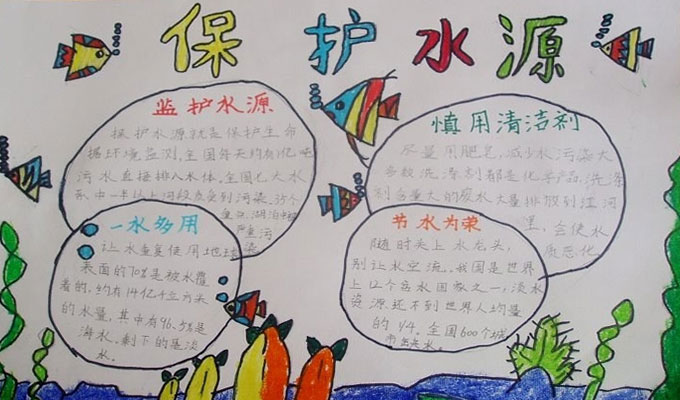 保护水源
监护水源
保护水源就是保护生命
据环境监测,全国每天约有1亿吨
污水直接排入水体,全国七大水
系中一半以上河段水质受到污染,35个
重点湖泊中
严重污
染
慎用清洁剂
尽量用肥皂,减少水污染大
多数洗涤剂都是化学产品,洗涤
剂含量大的废水大量排放到江河
里,会使水
质恶化
一水多用
让水重复使用地球
表面的70%是被水覆
着的,约有14亿千立方米
的水量,其中有96.5%是
海水,剩下的是淡
水.
节水为荣
随时关上水龙头,
别让水空流,我国是世界
上12个贫水国家之一,淡水
资源还不到世界人均量
的1/4.全国600个城
市
水.